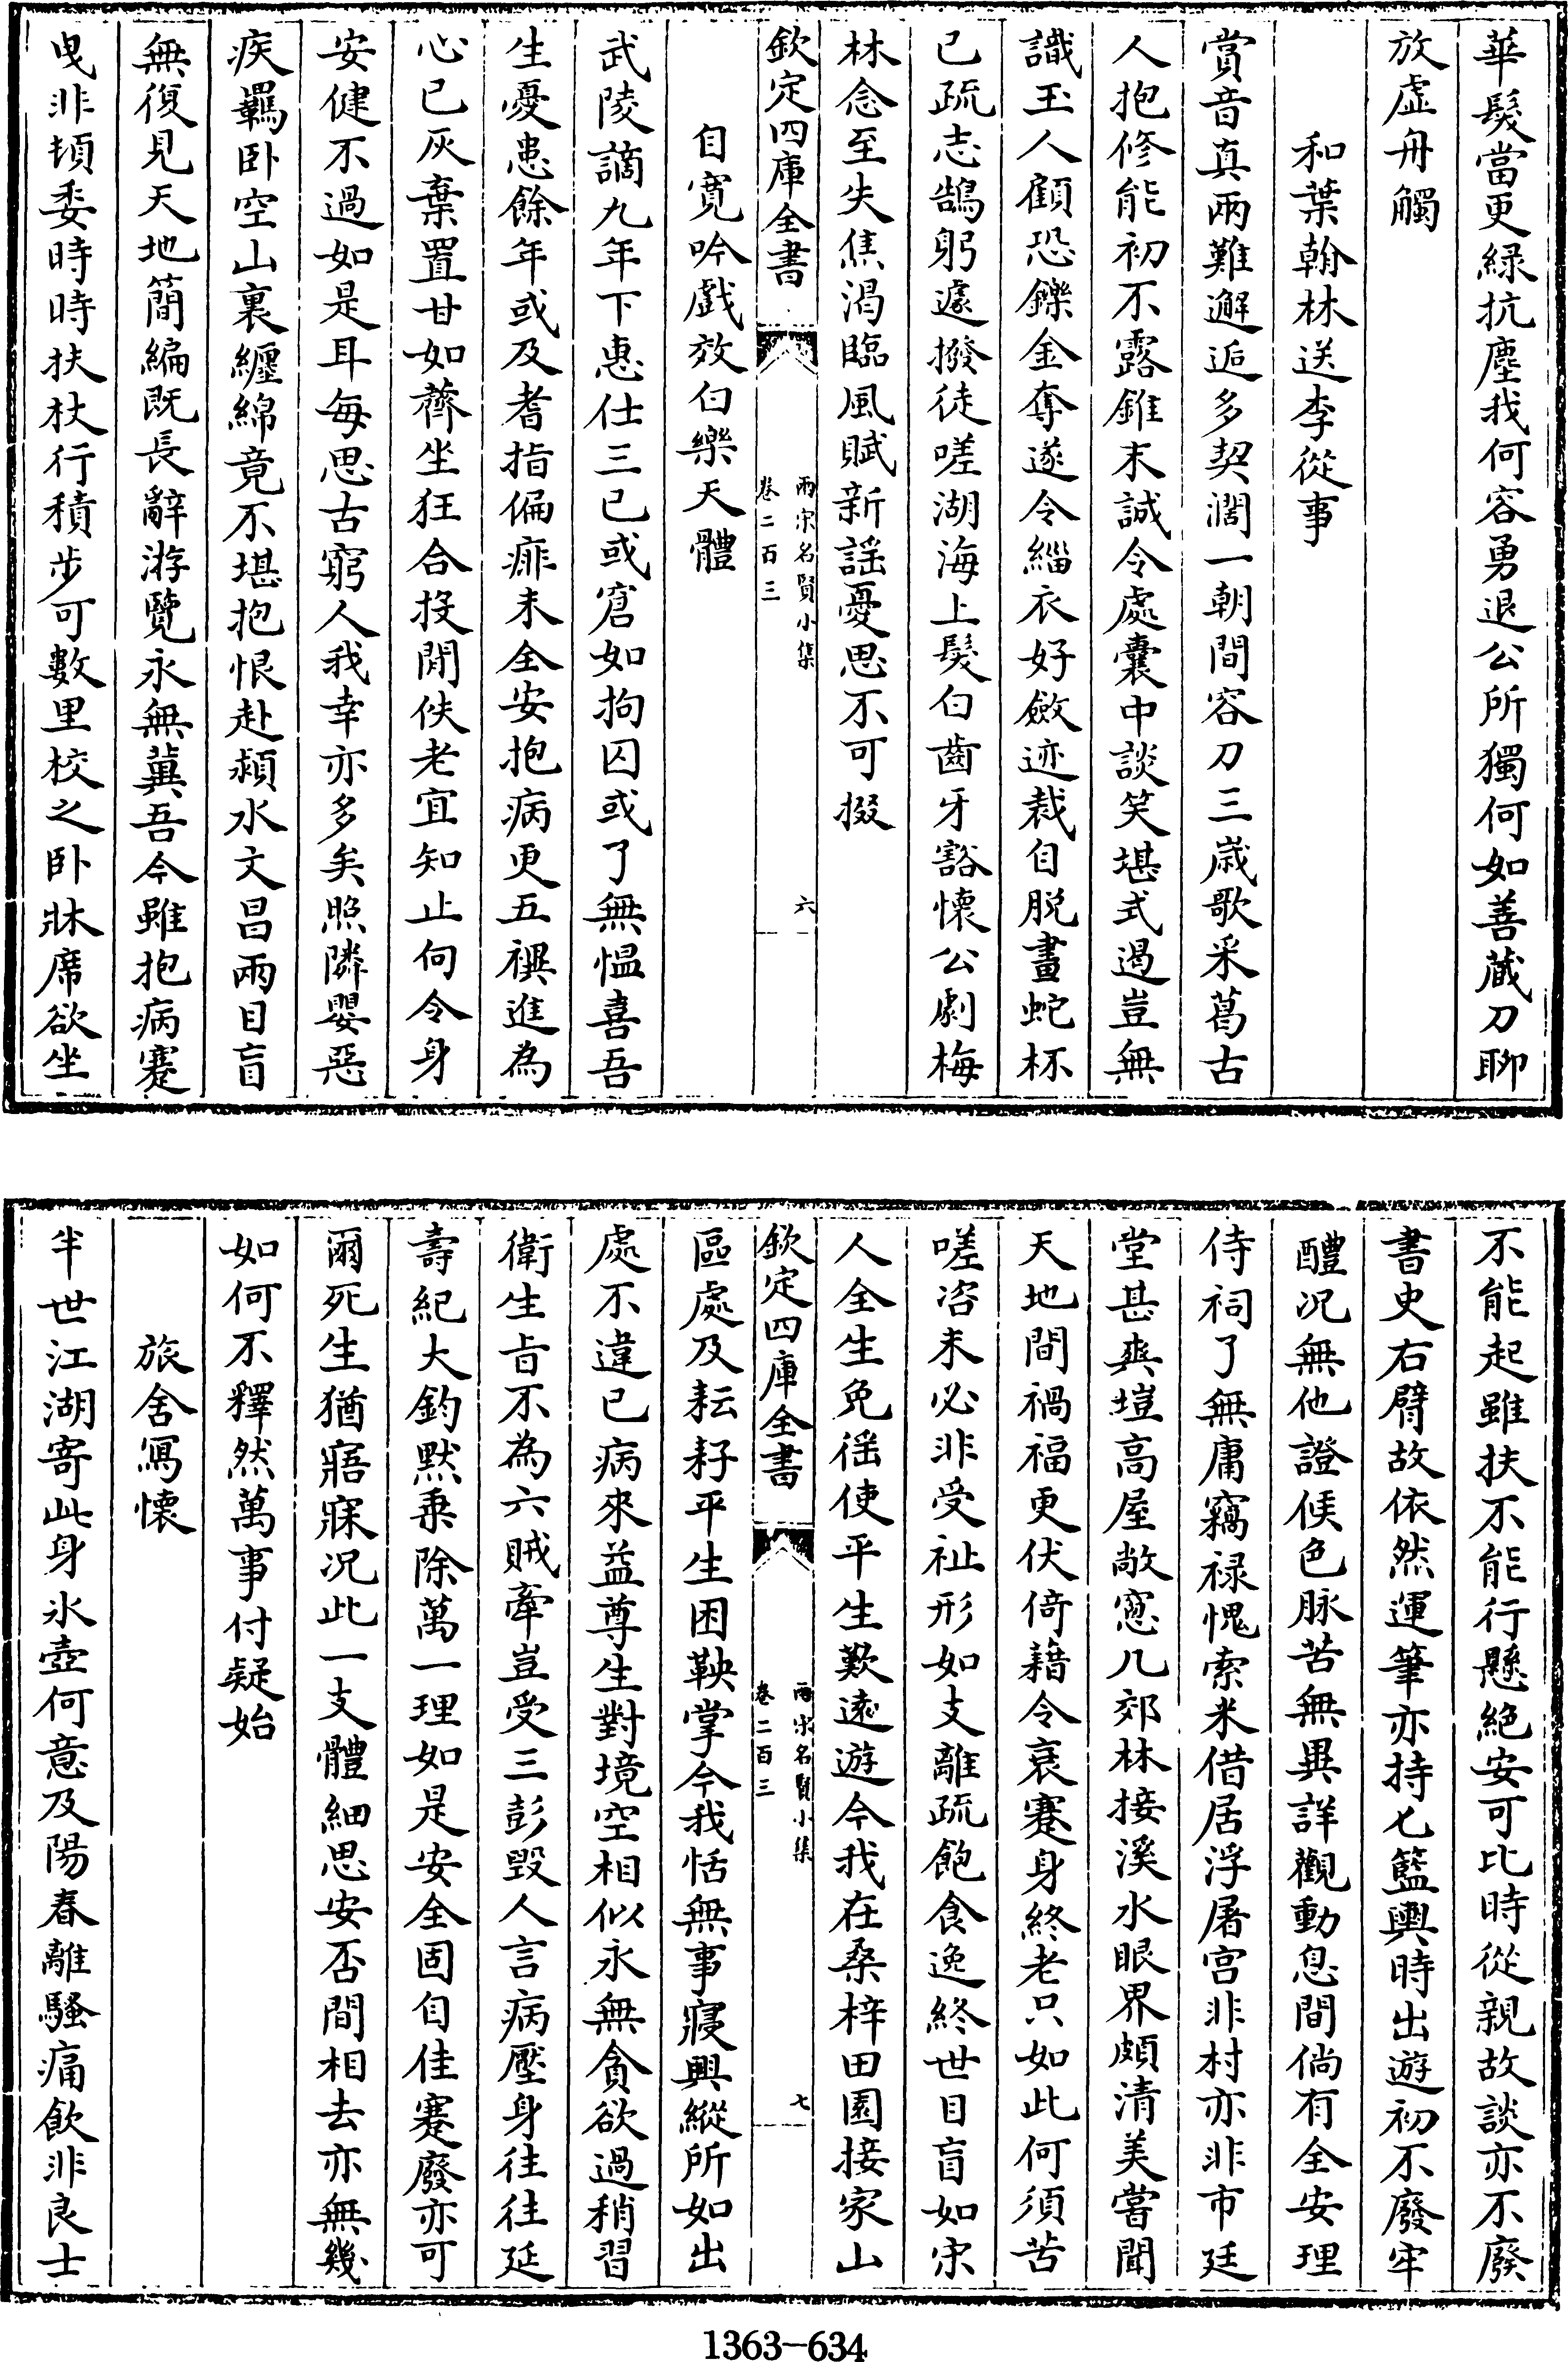 華髮當更緑抗塵我何容勇退公所獨何如善蔵刀聊
放虚舟觸
和葉翰林送李從事
賞音真兩難邂逅多契濶一朝間容刀三歲歌采葛古
人抱修能初不露錐末誠令處囊中談笑堪式遏豈無
識玉人顧恐鑠金奪遂令緇衣好斂迹裁自脱畫蛇杯
已疏志鵠躬遽撥徒嗟湖海上髮白齒牙豁懷公劇梅
林念至失焦渴臨風賦新謡憂思不可掇
欽定四庫全書
兩宋名賢小集
卷二百三
六
自寛吟戲效白樂天體
武陵謫九年下惠仕三已或窘如拘囚或了無愠喜吾
生憂患餘年或及耆指偏痱未全安抱病更五禩進為
心已灰棄置甘如薺坐狂合投閒佚老宜知止向令身
安健不過如是耳每思古窮人我幸亦多矣照隣嬰惡
疾羈卧空山裏纏綿竟不堪抱恨赴潁水文昌兩目盲
無復見天地簡編既長辭游覽永無冀吾今雖抱病蹇
曳非頓委時時扶杖行積步可數里校之卧牀席欲坐
不能起雖扶不能行懸絶安可比時從親故談亦不廢
書史右臂故依然運筆亦持匕籃輿時出遊初不廢牢
醴况無他證候色脉苦無異詳觀動息間倘有全安理
侍祠了無庸竊禄愧索米借居浮屠宫非村亦非市廷
堂甚爽塏高屋敞窓几郊林接溪水眼界頗清美嘗聞
天地間禍福更伏倚藉令衰蹇身終老只如此何須苦
嗟咨未必非受祉形如支離疏飽食逸終世目盲如宋
人全生免徭使平生歎遠遊今我在桑梓田園接家山
欽定四庫全書
兩宋名賢小集
卷二百三
七
區處及耘耔平生困鞅掌今我恬無事寢興縱所如出
處不違已病來益尊生對境空相似永無貪欲過稍習
衛生旨不為六賊牽豈受三彭毁人言病壓身往往延
壽紀大鈞黙乘除萬一理如是安全固自佳蹇廢亦可
爾死生猶寤寐况此一支體細思安否間相去亦無幾
如何不釋然萬事付疑始
旅舍寫懷
半世江湖寄此身氷壺何意及陽春離騷痛飲非良士
1363-634